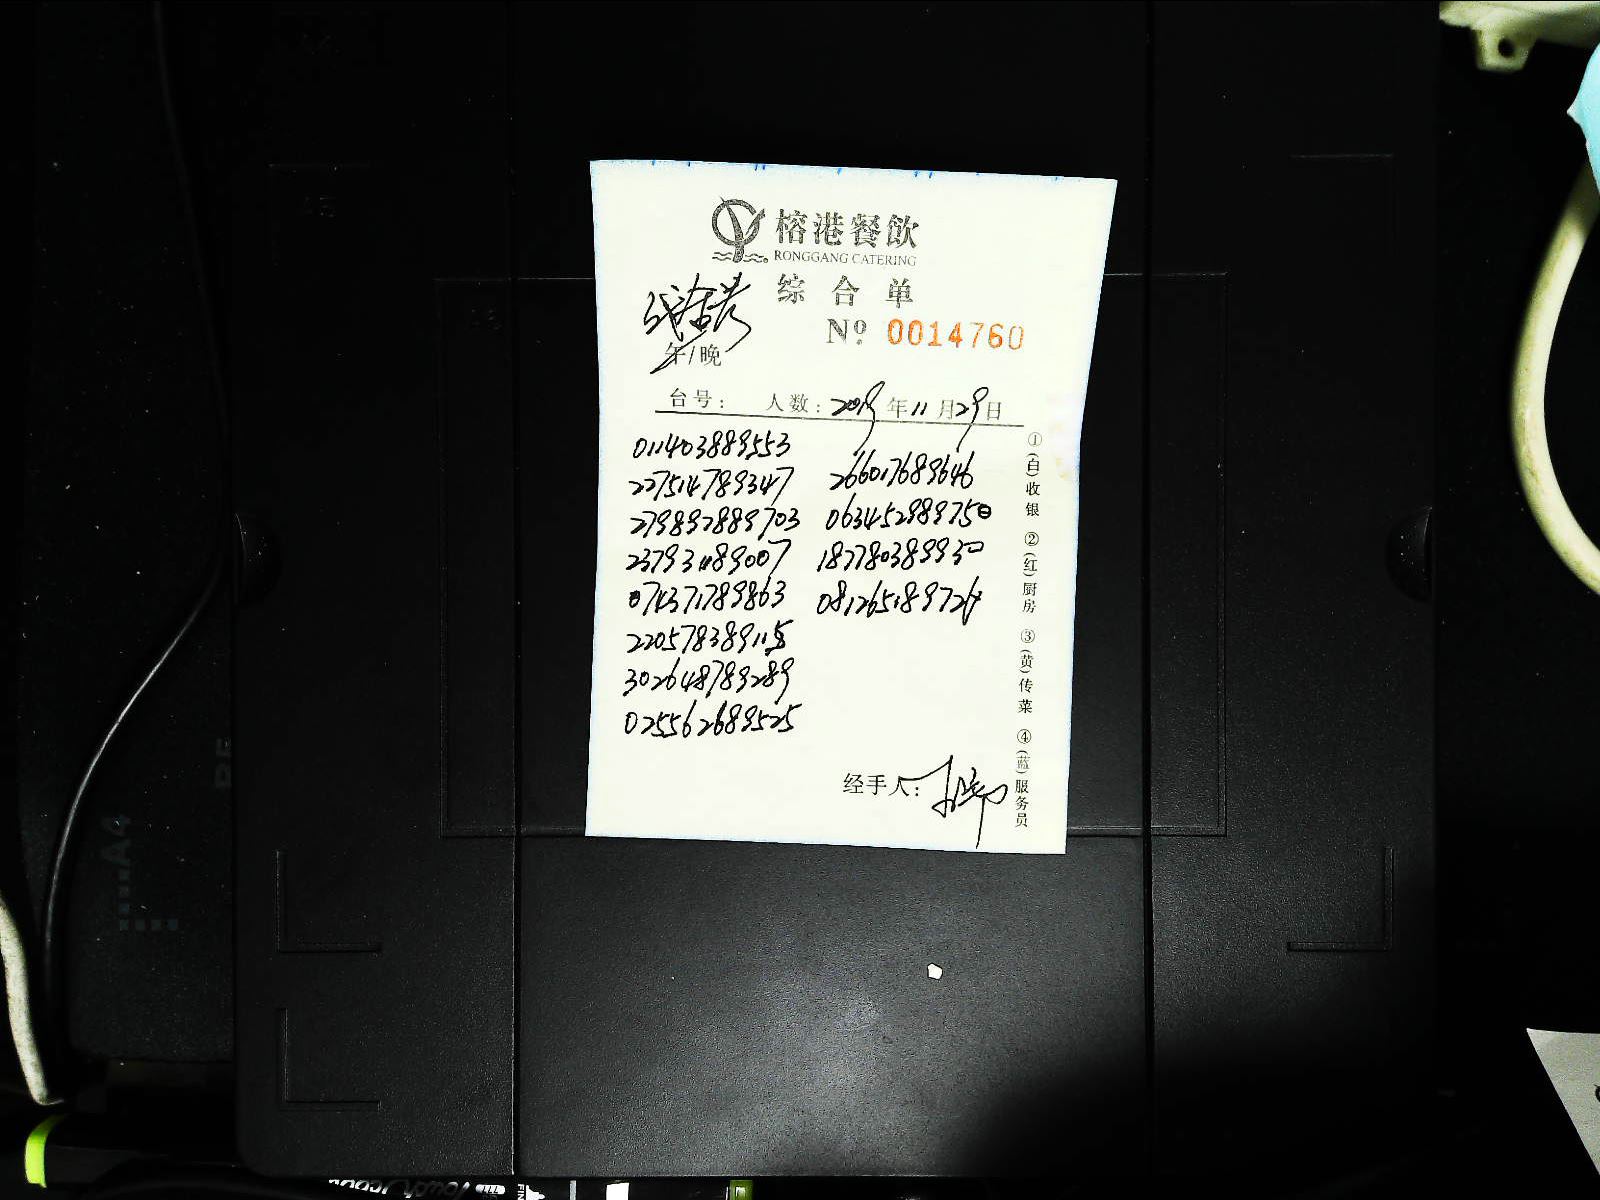 榕港餐飲
RONGGANG CATERING
综合单
代金券
Nº 0014760
午/晚
台号： 人数：2019年11月29日
011403889553
227514789347
279892889703
237931189007
074371789863
220578389115
302648789289
025562689525
266017689646
063452989750
187780389930
081265189724
①(白)收银 ②(红)厨房 ③(黄)传菜 ④(蓝)服务员
经手人：
A4